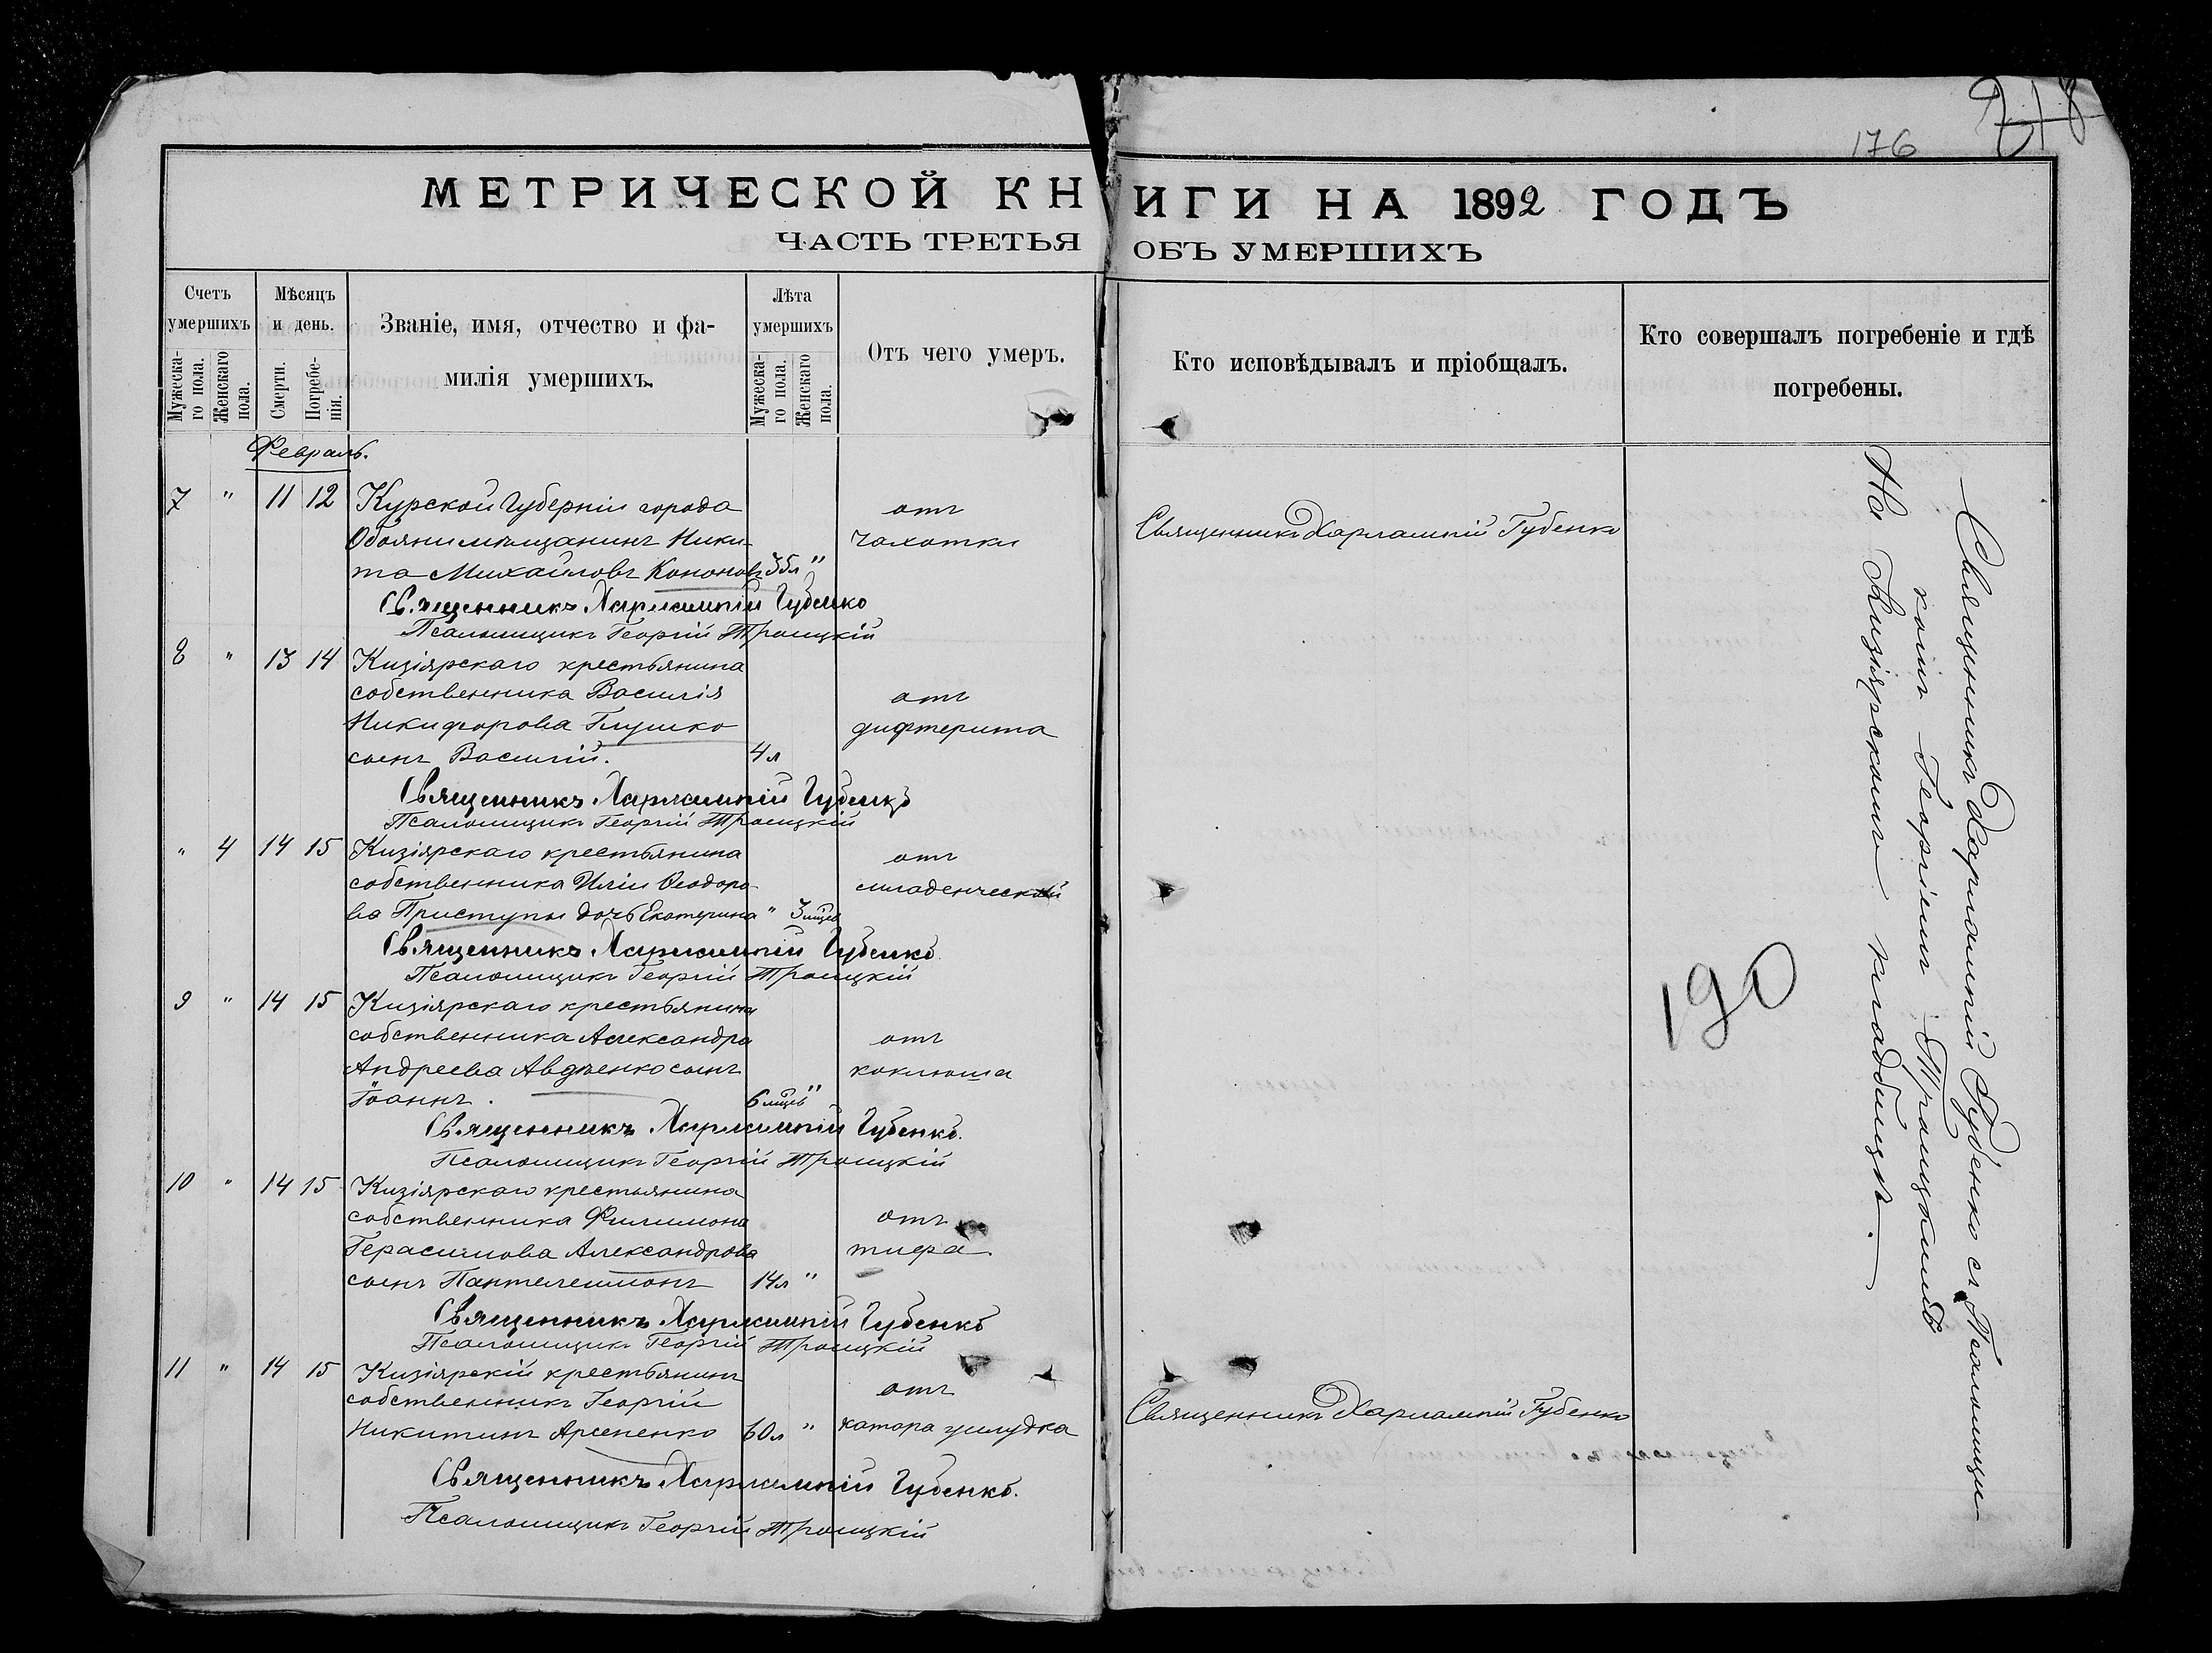 218
176
МЕТРИЧЕСКОЙ КНИГИ НА 1892 ГОДЪ
ЧАСТЬ ТРЕТЬЯ ОБЪ УМЕРШИХЪ
Счетъ умершихъ
Мужеска-го пола.
Женскаго пола.
Мѣсяцъ и день.
Смерти.
Погребе-нія.
Званіе, имя, отчество и фа-
милія умершихъ.
Лѣта умершихъ
Мужеска-го пола.
Женскаго пола.
Отъ чего умеръ.
Кто исповѣдывалъ и пріобщалъ.
Кто совершалъ погребеніе и гдѣ
погребены.
Февраль.
7 " 11 12 Курской Губерніи города отъ Священникъ Харлампій Губенко
Обояни мѣщанинъ Ники- чахотки
та Михайловъ Кононовъ "
Священникъ Харлампій Губенко
Псаломщикъ Георгій Троицкій
8 " 13 14 Кизіярскаго крестьянина
собственника Василія отъ
Никифорова Глушко дифтерита
сынъ Василій. 4 л
Священникъ Харлампій Губенко
Псаломщикъ Георгій Троицкій
" 4 14 15 Кизіярскаго крестьянина отъ
собственника Иліи Ѳеодоро- младенческой
ва Приступы дочь Екатерина " 3 мцев
Священникъ Харлампій Губенко
Псаломщикъ Георгій Троицкій
9 " 14 15 Кизіярскаго крестьянина
собственника Александра отъ
Андреева Авдѣенко сынъ коклюша
Іоаннъ. 6 мцев "
Священникъ Харлампій Губенко.
Псаломщикъ Георгій Троицкій
10 " 14 15 Кизіярскаго крестьянина
собственника Филимона отъ
Герасимова Александрова тифа
сынъ Пантелеимонъ 14 л "
Священникъ Харлампій Губенко
Псаломщикъ Георгій Троицкій
11 " 14 15 Кизіярскій крестьянинъ
собственникъ Георгій отъ Священникъ Харлампій Губенко
Никитинъ Арсененко 60 л " катара желудка
Священникъ Харлампій Губенко.
Псаломщикъ Георгій Троицкій
190
Священникъ Харлампій Губенко съ Псаломщи-
комъ Георгіемъ Троицкимъ
На Кизіярскомъ кладбищѣ.